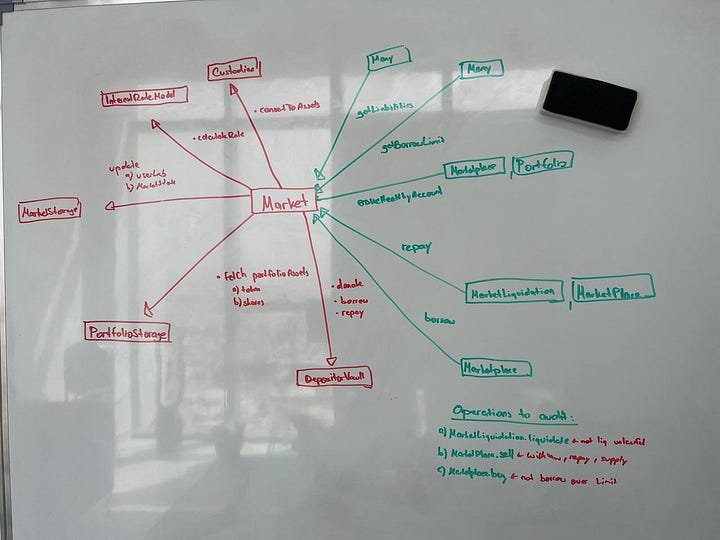 Custodian
Many
Many
InterestRateModel
• convertToAssets
getLiabilities
• calculateRate
getBorrowLimit
update
a) userLiab
b) MarketState
Marketplace, Portfolio
ensureHealthyAccount
MarketStorage
Market
repay
• fetch portfolioAssets
a) token
b) shares
• donate
• borrow
• repay
MarketLiquidation, MarketPlace
borrow
PortfolioStorage
DepositorVault
Marketplace
Operations to audit:
a) MarketLiquidation.liquidate ← not liq
b) MarketPlace.sell ← withdraw, repay, supply
c) Marketplace.buy ← not borrow over limit